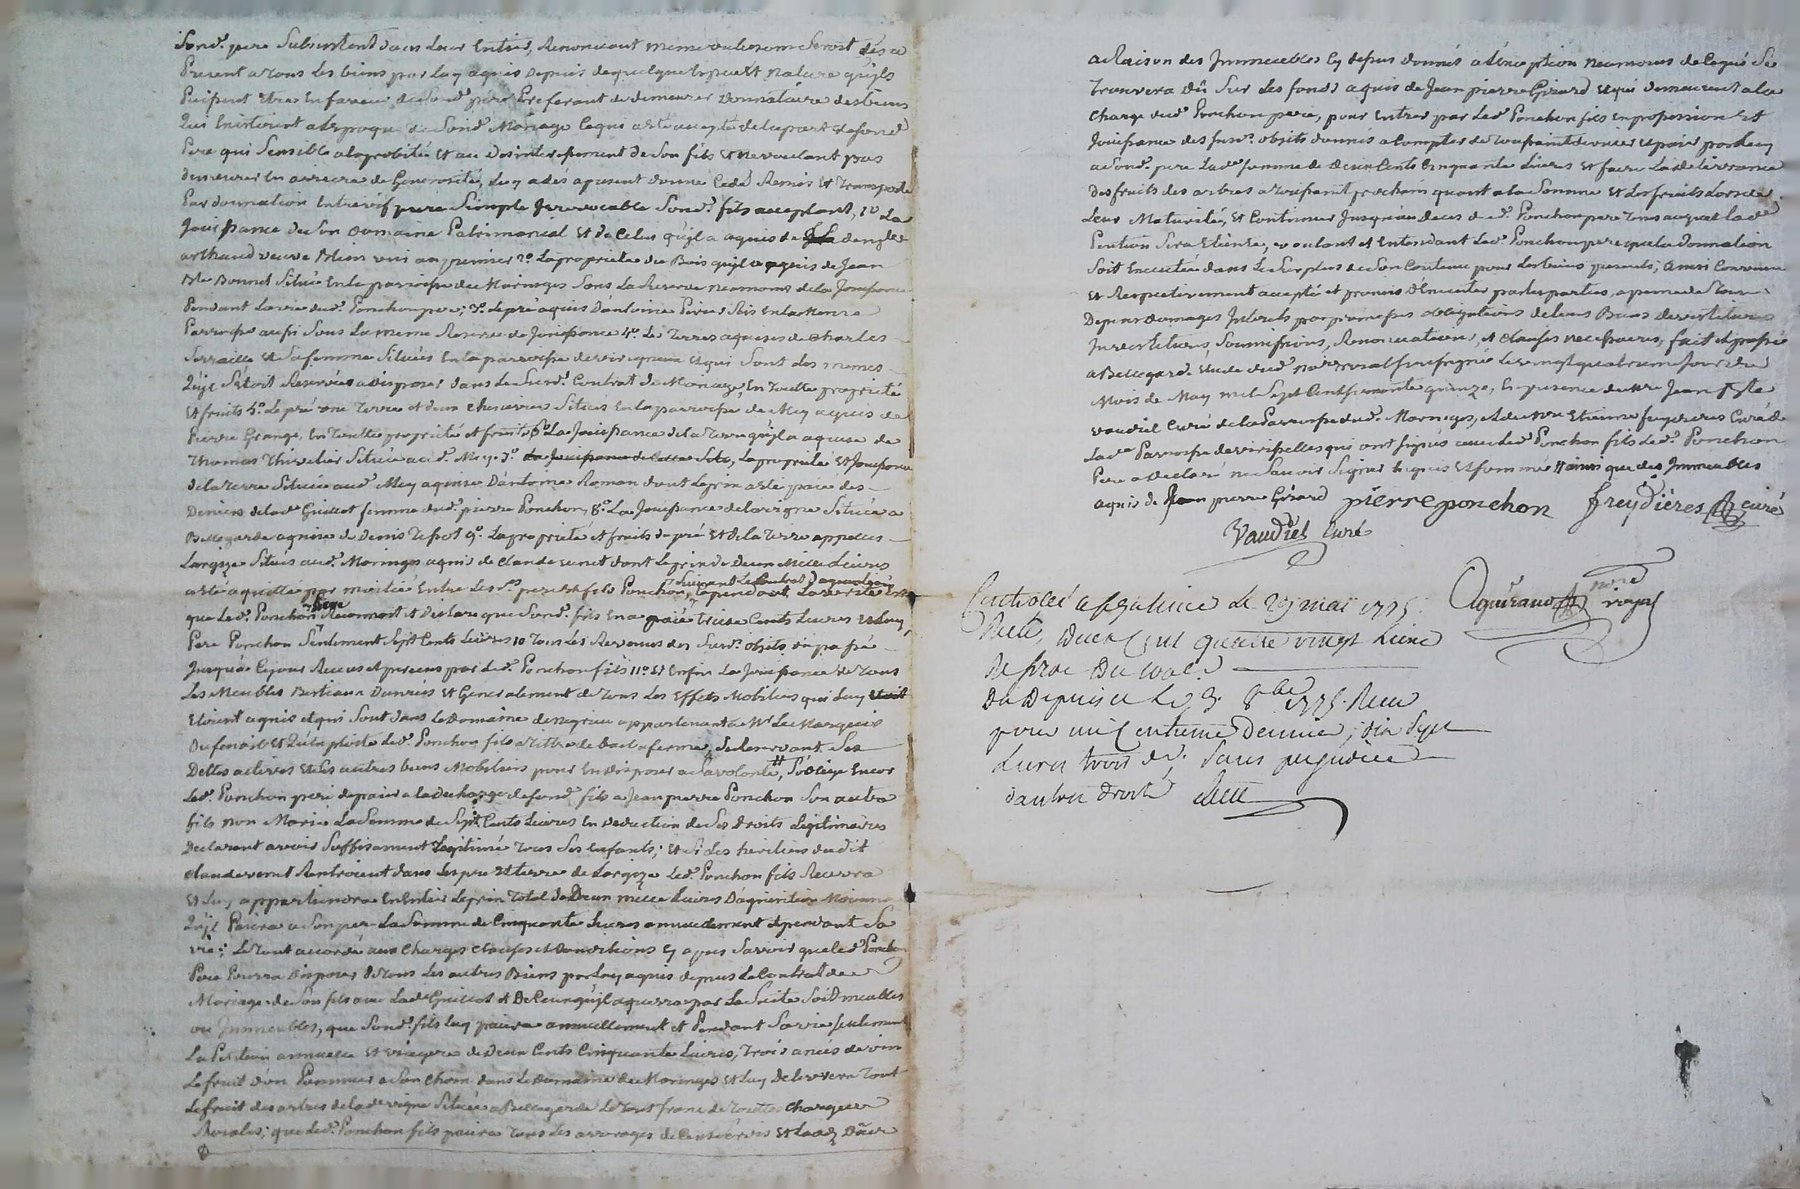 Sond. pere Subsistent dans leur Entier, Renonceant meme au besoin Seroit dés a
Present a Tous Les biens par Luy aquis Depuis de quelque Espece et Nature qu'ils
Puissent Etre En faveur de Sond. pere Preferant de demeurer Donnataire des biens
Qui Existoient a Lepoque de Sond. Mariage Ce qui a eté accepté de la part desond.
Pere qui Sensible a la probité et au Desinteressement de Son fils et ne voulant pas
demeurer En arriere de Generosité, Luy a dés apresent donné Cedé Remis et Transporté
Par donnation Entrevif pure Simple Irrevocable Sond. fils acceptant, 1o La
Jouissance de Son Domaine Patrimonial et de Celuy qu'il a aquis de
arthaud veuve uni au premier 2o La proprieté du Bois qu'il a aquis de Jean
Bte Bonnet Situé En la paroisse de Maringes Sous La Reserve neamoins de la Jouissance
Pendant La vie dud. Ponchon pere; 3o Le pré aquis D'antoine En la meme
Parroisse aussi Sous La meme Reserve de Jouissance 4o Les Terres aquises de Charles
et Sa femme Situées En la parroisse de et qui Sont Les memes
Qu'il S'etoit Reservées a disposer dans Le Susd. Contrat de Mariage, En Toutte proprieté
et fruits 5o Le pré une Terre et deux Situés En la parroisse de Mey aquis de
Pierre Grange, En Toutte proprieté et fruits 6o La Jouissance de la Terre qu'il a aquise de
Thomas Situé aud. Mey 7o La proprieté et Jouissance
de la Terre Située aud. Mey aquise D'antoine Roman dont Le prix a eté paié des
Deniers de lade Guillot femme dud. pierre Ponchon, 8o La Jouissance de la vigne Située a
Bellegarde aquise de Denis 9o La proprieté et fruits du pré et de la Terre appellés
Largize Situés aud. Maringes aquis de Claude venet dont Le prix de Deux Mille Livres
a eté aquitté par moitié Entre Les pere et fils Ponchon,
que Led. Ponchon pere Reconnoit et Declare que Sond. fils En a paié Treize Cents Livres et Luy
Pere Ponchon Seulement Sept Cents Livres 10 Tous Les Revenus des Susd. objets du passé
Jusqu'a Ce jour Receus et perceus par Led. Ponchon fils 11o et Enfin La Jouissance de Tous
Les Meubles Bestiaux Danrées et Generalement de Tous Les Effets Mobiliers qui Luy
Etoient aquis et qui Sont dans Le Domaine de appartenant a Mr Le Marquis
et Qu'exploite Led. Ponchon fils a Titre de bail a ferme, Se Reservant Ses
Dettes actives et Les autres biens Mobiliers pour En disposer a Sa volonté, S'oblige Encor
Led. Ponchon pere de paier a la decharge de Sond. fils a Jean pierre Ponchon Son autre
fils non Marié La Somme de Sept Cents Livres En deduction de Ses Droits Legitimaires
Declarant avoir Suffisament Legitimé Tous Ses Enfants; et Si Les heritiers dudit
Claude venet Rentroient dans Les pré et terre de Largize Led. Ponchon fils Recevra
et Luy appartiendra En Entier Le prix Total de Deux mille Livres D'aquisition Moienant
Qu'il Paiera a Son pere La Somme de Cinquante Livres annuellement et pendant Sa
vie; Le Tout accordé aux Charges Clauses et Conditions Cy apres Savoir que Led. Ponchon
Pere Pourra Disposer de Tous Les autres Biens par Luy aquis depuis Le Contrat de
Mariage de Son fils avec Lade Guillot et De Ceux qu'il aquerra par La Suite Soit meubles
ou Immeubles, que Sond. fils Luy paiera annuellement et Pendant Sa vie Seulement
La Pention annuelle et viagere de Deux Cents Cinquante Livres, Trois anées de vin
Le fruit d'un Pommier a Son Choix dans Le Domaine de Maringes et Luy Delivrera Tout
Le fruit des arbres de lade vigne Située a Bellegarde Le Tout franc de Touttes Charges
Royales; que Led. Ponchon fils paiera Tous Les arrerages de Cens et Servis et Lods
a Raison des Immeubles Cy dessus donnés a l'exception neamoins de Ce qui Se
Trouvera dû Sur Les fonds aquis de Jean pierre Girard et qui demeurent a la
Charge dud. Ponchon pere, pour Entrer par Led. Ponchon fils En possession et
Jouissance des Susd. objets donnés a Compter de Toussaint dernier et paier par Luy
a Sond. pere Lade Somme de deux Cents Cinquante Livres et faire La delivrance
Des fruits des arbres a Toussaint prochain quant a la Somme et Les fruits Lors de
Leur Maturité, et Continuer Jusqu'au deces dud. Ponchon pere Tems auquel Lade
Pention Sera Eteinte, voulant et Entendant Led. Ponchon pere que La donnation
Soit Executée dans Le Surplus de Son Contenu pour Les biens presents; Ainsi Convenu
et Respectivement accepté et promis D'executer par Les parties, a peine de Tous
Depens dommages Interets par promesses obligations de Leurs Biens Devestitures
Investitures, Soumissions, Renonciations, et Clauses necessaires, fait et passé
a Bellegarde Etude dud. no. Royal Soussigné Le vingt quatrieme Jour du
Mois de May mil Sept Cent Soixante quinze, En presence de Mre Jean Bte
Vaudiel Curé de la Parroisse dud. Maringes, et de Mre Etienne freydieres Curé de
Lade Parroisse de qui ont signé avec Led. Ponchon fils Led. Ponchon
Pere a Declaré ne Savoir Signer Enquis et sommé ainsi que des Immeubles
aquis de Jean pierre Girard pierre ponchon freydieres curé
Vaudiel Curé
Controllé a St galmier Le 29 mai 1775.
Recu Deux Cent quatre vingt Livre
Aguiraud nore royal
1775. Recu
pour un Centieme Denier, dix Sept
Livres trois Sd. Sans prejudice
d'autres droits